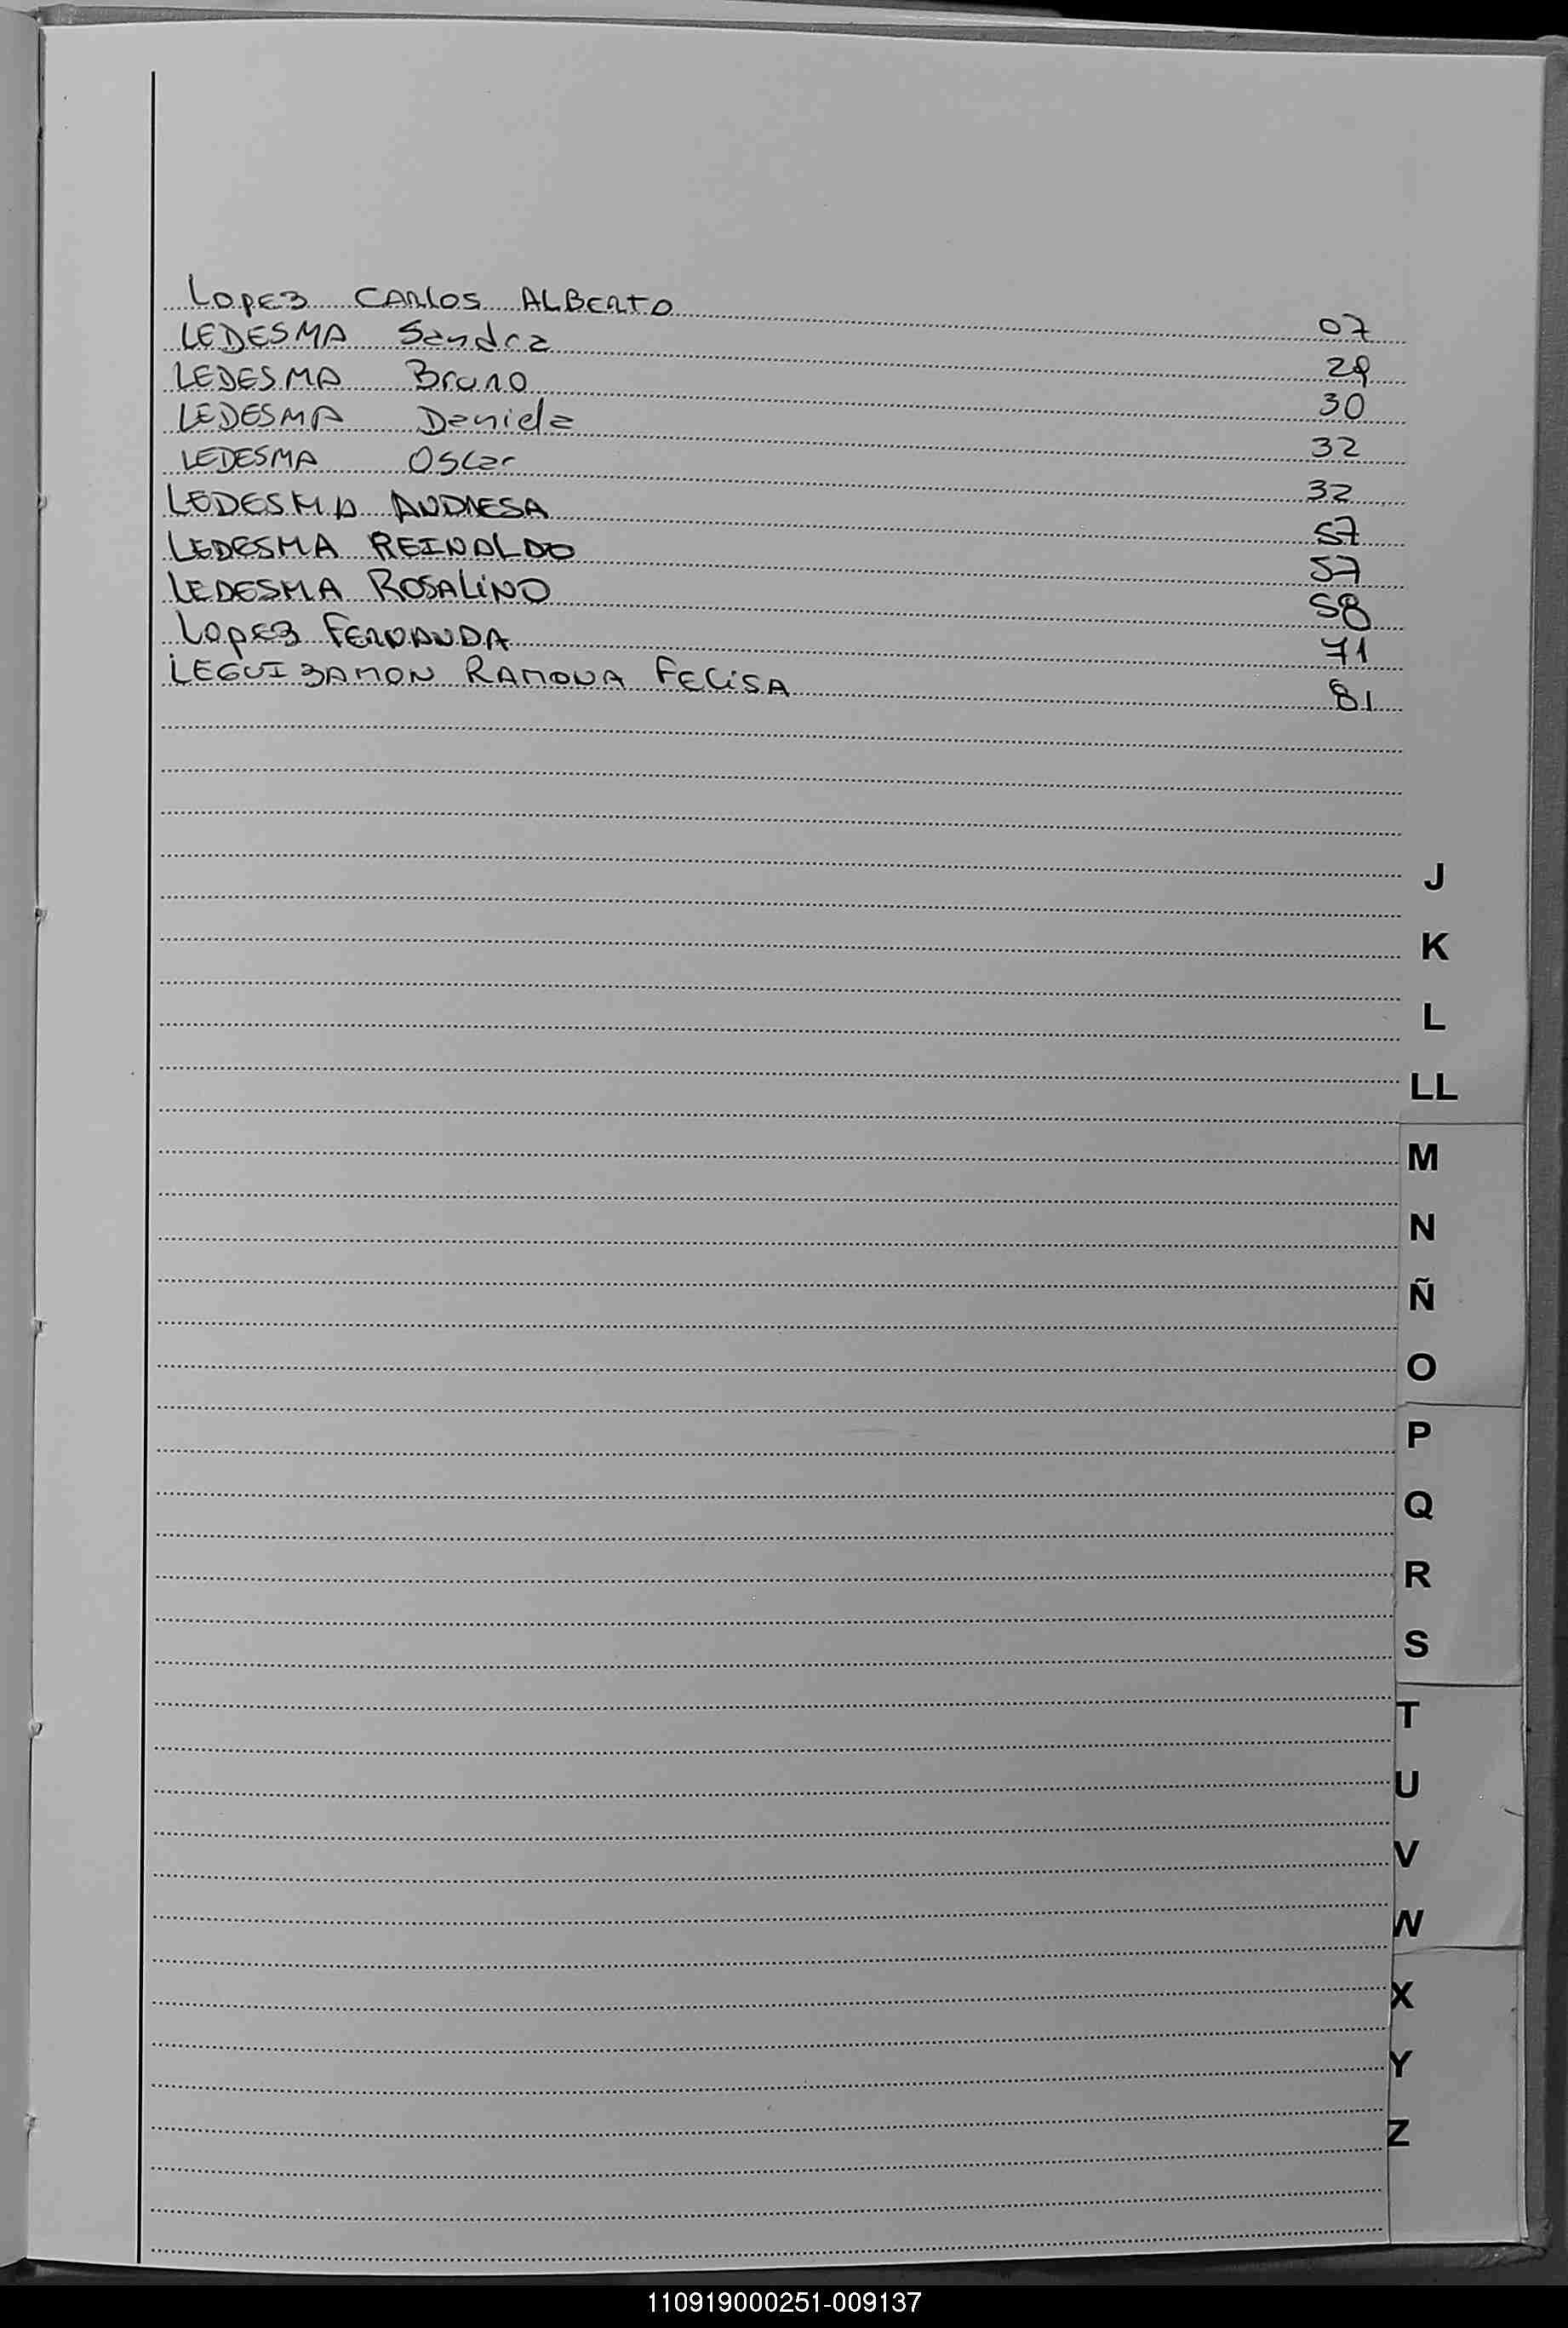 LOPEZ CARLOS ALBERTO 07
LEDESMA Sandra 29
LEDESMA Bruno 30
LEDESMA Daniela 32
LEDESMA Oscar 32
LEDESMA ANDRESA 57
LEDESMA REINALDO 57
LEDESMA ROSALINO 58
LOPEZ FERNANDA 71
LEGUIZAMON RAMONA FELISA 81
J
K
L
LL
M
N
Ñ
O
P
Q
R
S
T
U
V
W
X
Y
Z
110919000251-009137